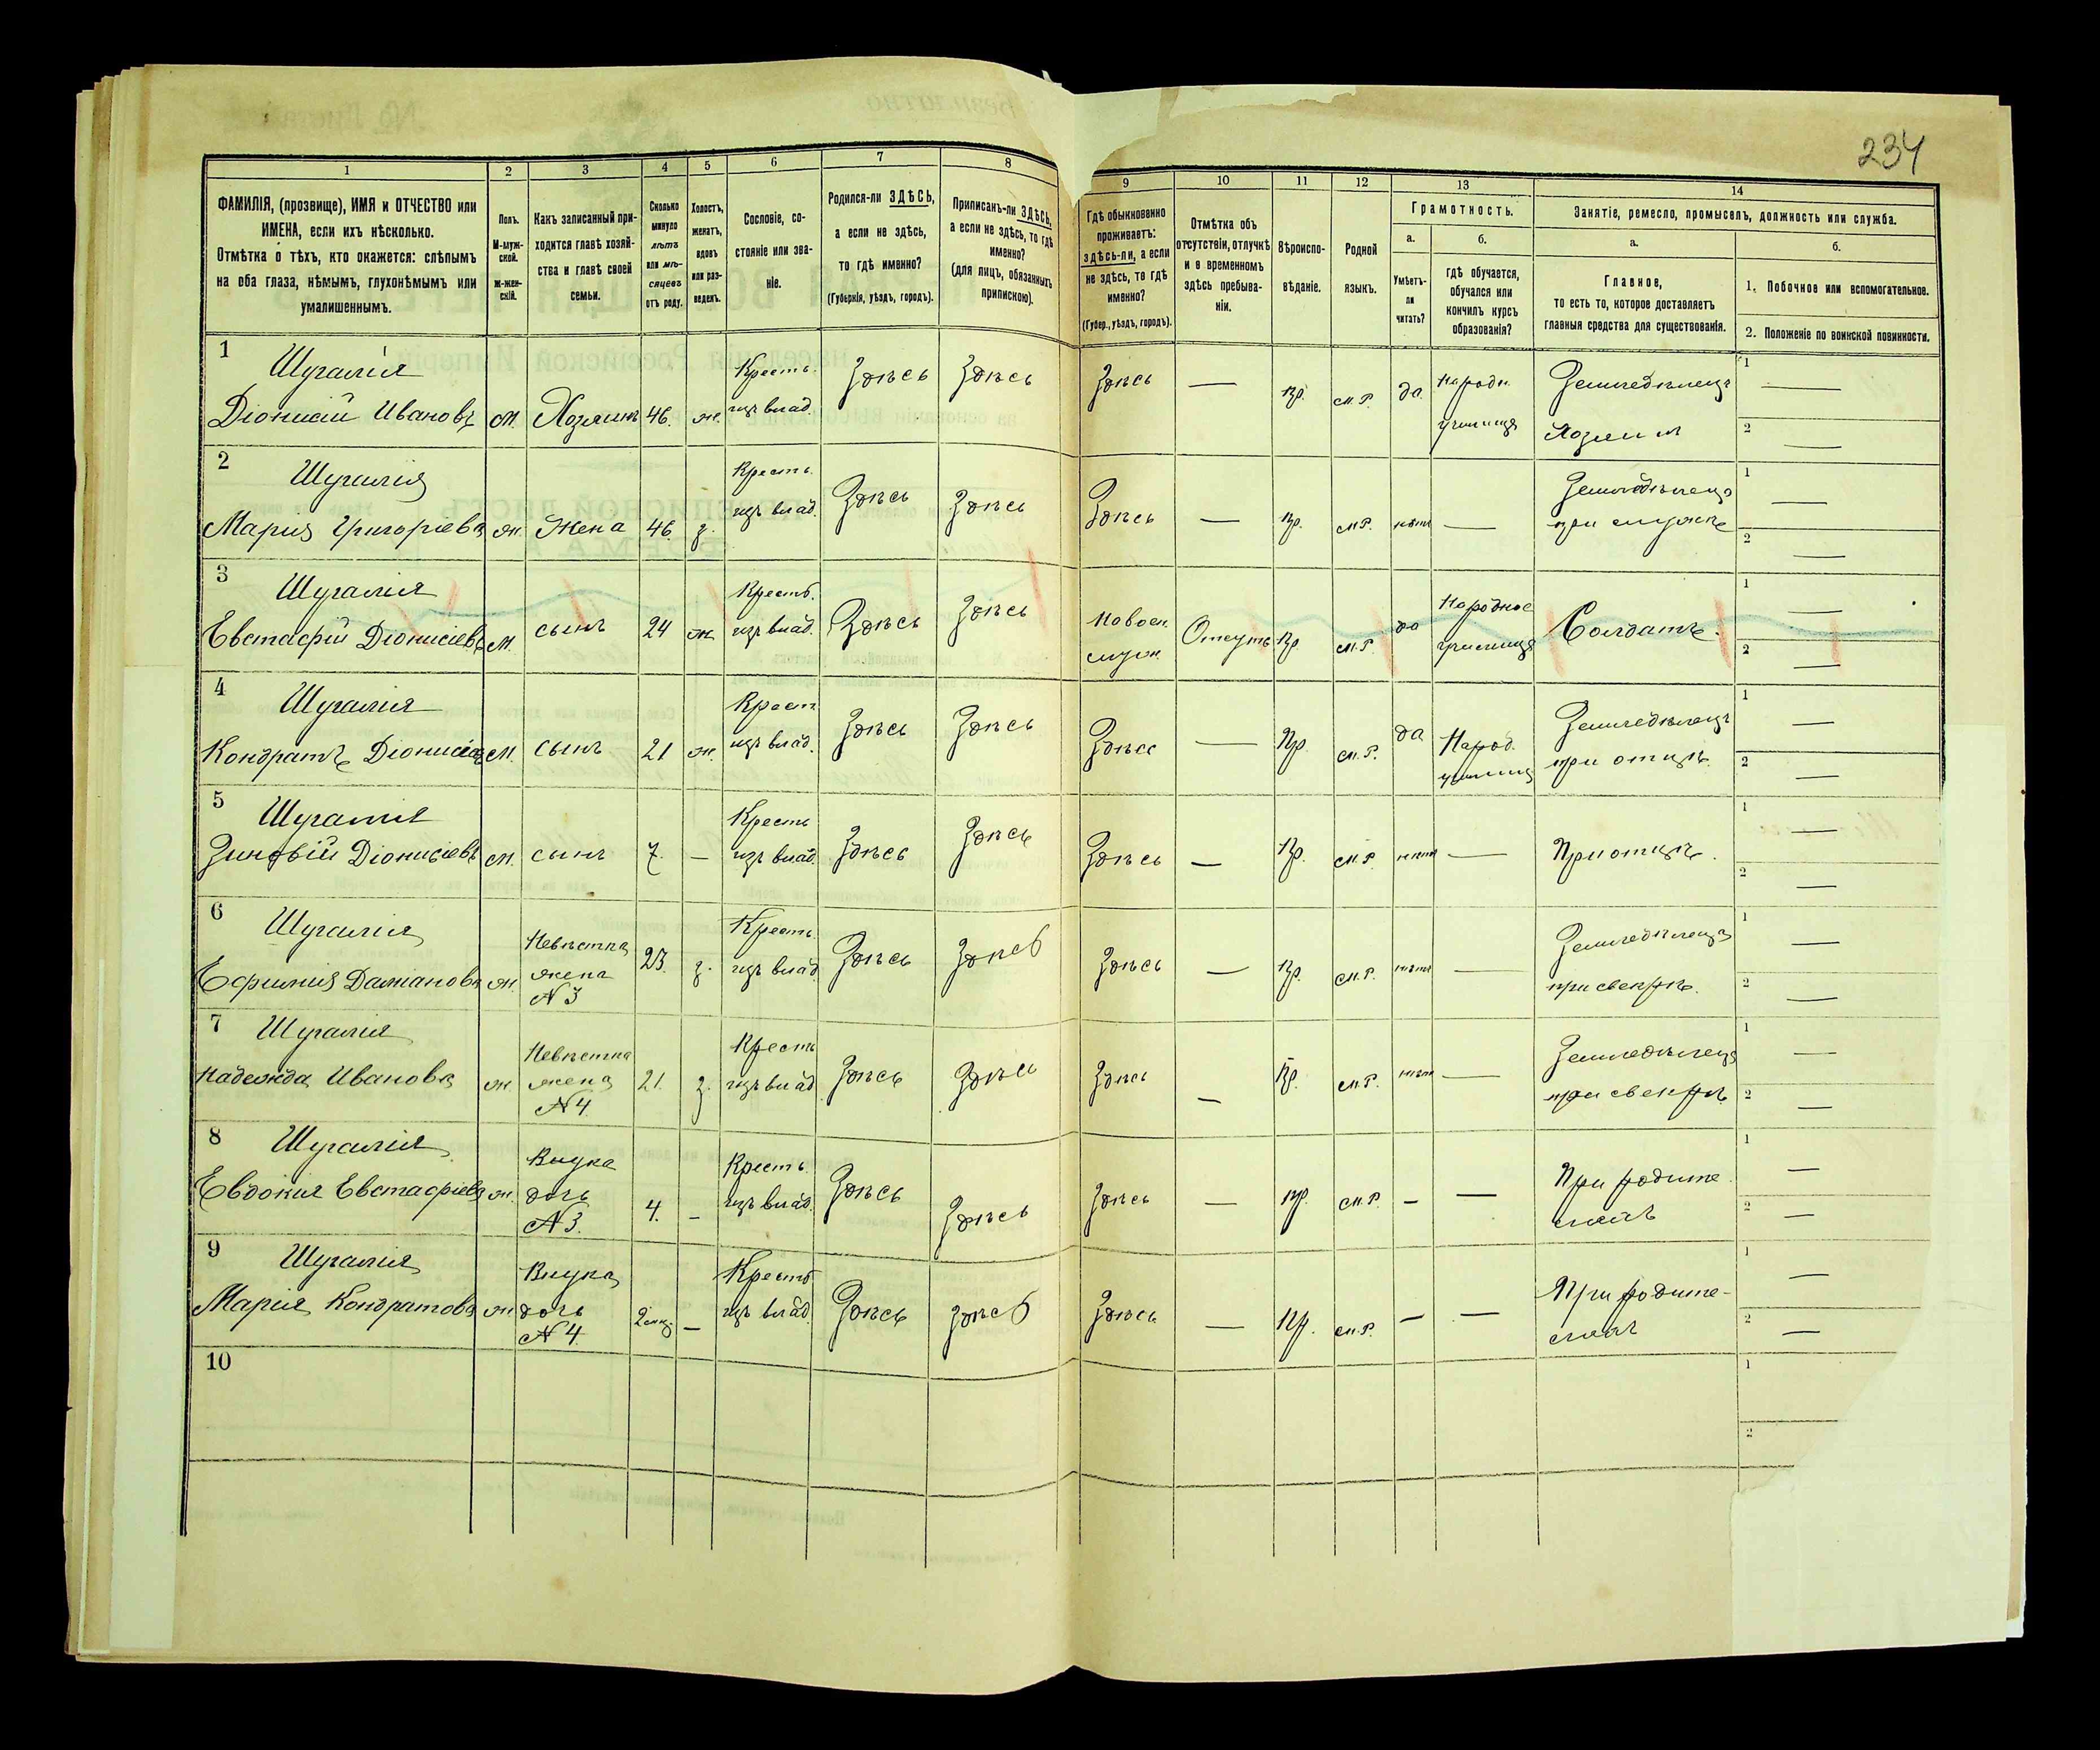 234
1 2 3 4 5 6 7 8 9 10 11 12 13 14
ФАМИЛІЯ, (прозвище), ИМЯ и ОТЧЕСТВО или
ИМЕНА, если ихъ нѣсколько.
Отмѣтка о тѣхъ, кто окажется: слѣпымъ
на оба глаза, нѣмымъ, глухонѣмымъ или
умалишеннымъ.
Полъ.
М-муж-
ской.
ж-жен-
скій.
Какъ записанный при-
ходится главѣ хозяй-
ства и главѣ своей
семьи.
Сколько
минуло
лѣтъ
или мѣ-
сяцевъ
отъ роду.
Холостъ,
женатъ,
вдовъ
или раз-
веденъ.
Сословіе, со-
стояніе или зва-
ніе.
Родился-ли ЗДѢСЬ,
а если не здѣсь,
то гдѣ именно?
(Губернія, уѣздъ, городъ).
Приписанъ-ли ЗДѢСЬ,
а если не здѣсь, то гдѣ
именно?
(для лицъ, обязанныхъ
припискою).
Гдѣ обыкновенно
проживаетъ:
здѣсь-ли, а если
не здѣсь, то гдѣ
именно?
(Губер., уѣздъ, городъ).
Отмѣтка объ
отсутствіи, отлучкѣ
и о временномъ
здѣсь пребыва-
ніи.
Вѣроиспо-
вѣданіе.
Родной
языкъ.
Грамотность.
а.
Умѣетъ-
ли
читать?
б.
гдѣ обучается,
обучался или
кончилъ курсъ
образованія?
Занятіе, ремесло, промыселъ, должность или служба.
а.
Главное,
то есть то, которое доставляетъ
главныя средства для существованія.
б.
1. Побочное или вспомогательное.
2. Положеніе по воинской повинности.
1
Шугалія
Діонисій Ивановъ
м.
Хозяинъ
46.
ж.
Кресть.
изъ влад.
Здѣсь
Здѣсь
Здѣсь
—
Пр.
м.Р.
да
Народн.
училище
Земледѣлецъ
Хозяинъ
1 —
2 —
2
Шугалія
Марія Григорьева
ж.
Жена
46.
з.
Кресть.
изъ влад.
Здѣсь
Здѣсь
Здѣсь
—
Пр.
м.Р.
нѣтъ
—
Земледѣлецъ
при мужѣ
1 —
2 —
3
Шугалія
Евстафій Діонисіевъ
м.
сынъ
24
ж
Кресть.
изъ влад.
Здѣсь
Здѣсь
На воен.
служ.
Отсутъ.
Пр.
м.Р.
да
Народное
училище
Солдатъ.
1 —
2 —
4
Шугалія
Кондратъ Діонисіевъ
м.
сынъ
21
ж.
Крест
изъ влад.
Здѣсь
Здѣсь
Здѣсь
—
Пр.
м.Р.
да
Народ.
училищ
Земледѣлецъ
при отцѣ.
1 —
2 —
5
Шугалія
Зиновій Діонисіевъ
м.
сынъ
7.
—
Кресть
изъ влад.
Здѣсь
Здѣсь
Здѣсь
—
Пр.
м.Р.
нѣтъ
—
При отцѣ.
1 —
2 —
6
Шугалія
Ефимія Даміанова
ж.
Невѣстка
жена
N 3
23.
з.
Кресть.
изъ влад
Здѣсь
Здѣсь
Здѣсь
—
Пр.
м.Р.
нѣтъ
—
Земледѣлецъ
при свекрѣ.
1 —
2 —
7
Шугалія
Надежда Иванова
ж.
Невѣстка
жена
N 4.
21.
з.
Кресть
изъ влад
Здѣсь
Здѣсь
Здѣсь
—
Пр.
м.Р.
нѣтъ
—
Земледѣлецъ
при свекрѣ
1 —
2 —
8
Шугалія
Евдокія Евстафіева
ж.
Внука
дочь
N 3.
4.
—
Кресть.
изъ влад.
Здѣсь
Здѣсь
Здѣсь
—
Пр.
м.Р.
—
—
При родите
ляхъ
1 —
2 —
9
Шугалія
Марія Кондратова
ж
Внука
дочь
N 4.
2 мц.
—
Кресть
изъ влад.
Здѣсь
Здѣсь
Здѣсь
—
Пр.
м.Р.
—
—
При родите-
ляхъ
1 —
2 —
10
1
2